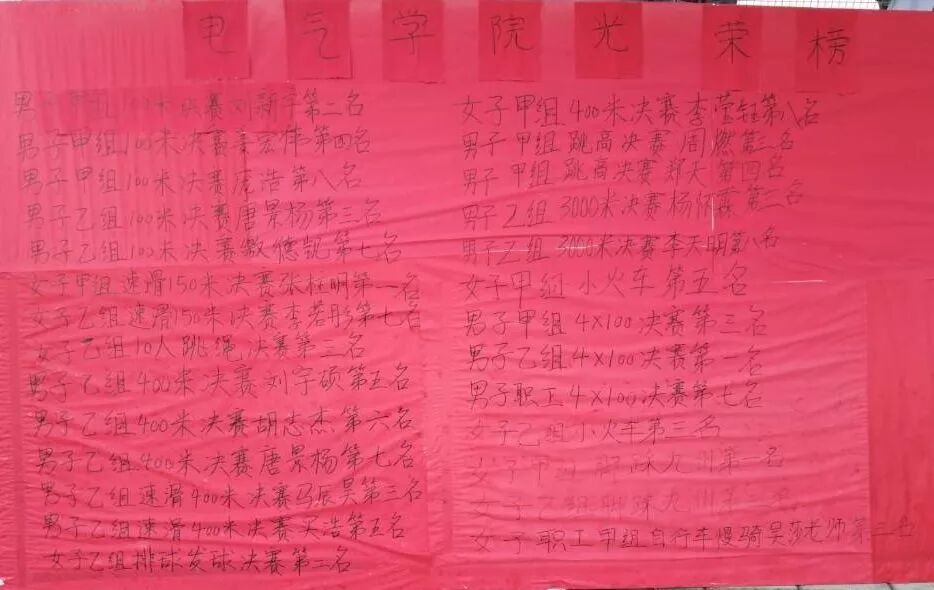 电气学院光荣榜
男子甲组100米决赛刘新宇第二名
男子甲组100米决赛秦宏伟第四名
男子甲组100米决赛庞浩第八名
男子乙组100米决赛唐景杨第三名
男子乙组100米决赛敖德凯第七名
女子甲组速滑150米决赛张桂明第一名
女子乙组速滑150米决赛李若彤第七名
女子乙组10人跳绳决赛第三名
男子乙组400米决赛刘宇硕第五名
男子乙组400米决赛胡志杰第六名
男子乙组400米决赛唐景杨第七名
男子乙组速滑400米决赛马辰昊第三名
男子乙组速滑400米决赛买浩第五名
女子乙组排球发球决赛第二名
女子甲组400米决赛李莹钰第八名
男子甲组跳高决赛周燃第三名
男子甲组跳高决赛郑天第四名
男子乙组3000米决赛杨怀霖第三名
男子乙组3000米决赛李天明第八名
女子甲组小火车第五名
男子甲组4×100决赛第三名
男子乙组4×100决赛第一名
男子职工4×100决赛第七名
女子乙组小火车第三名
女子甲组脚踩九洲第一名
女子乙组脚踩九洲第
女子职工甲组自行车慢骑吴莎老师第三名